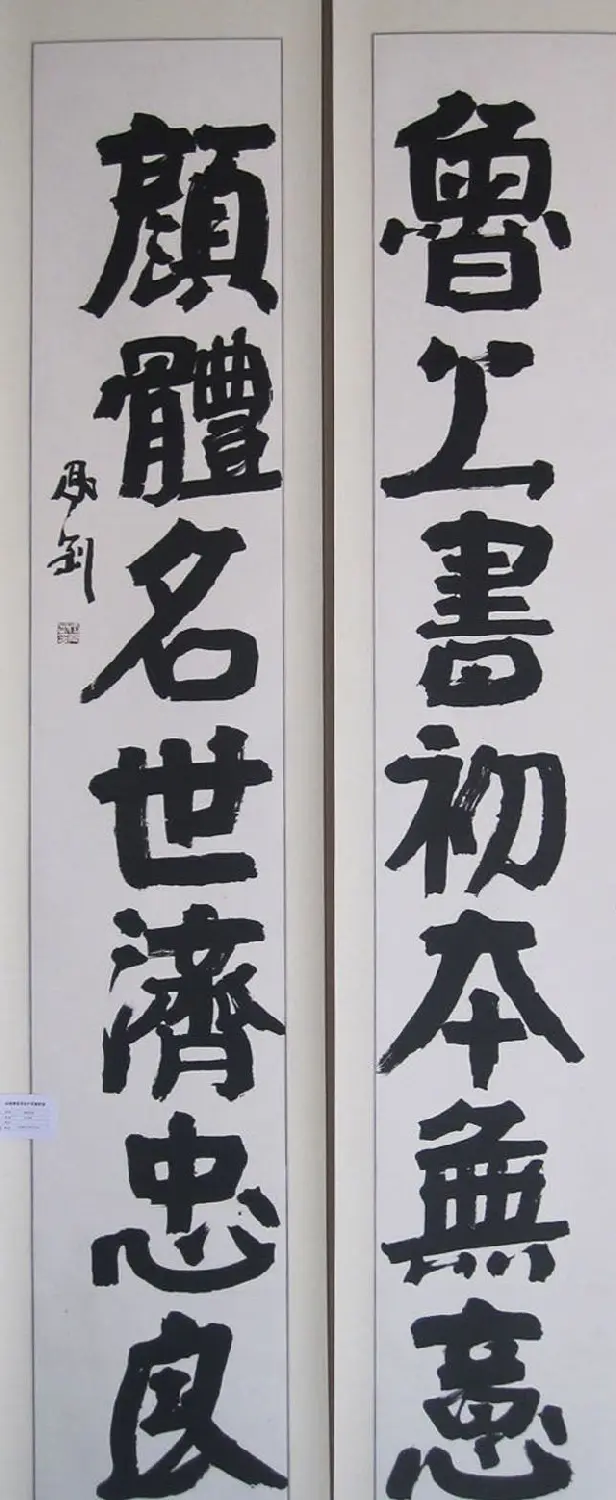 魯公書初本無意
顏體名世濟忠良